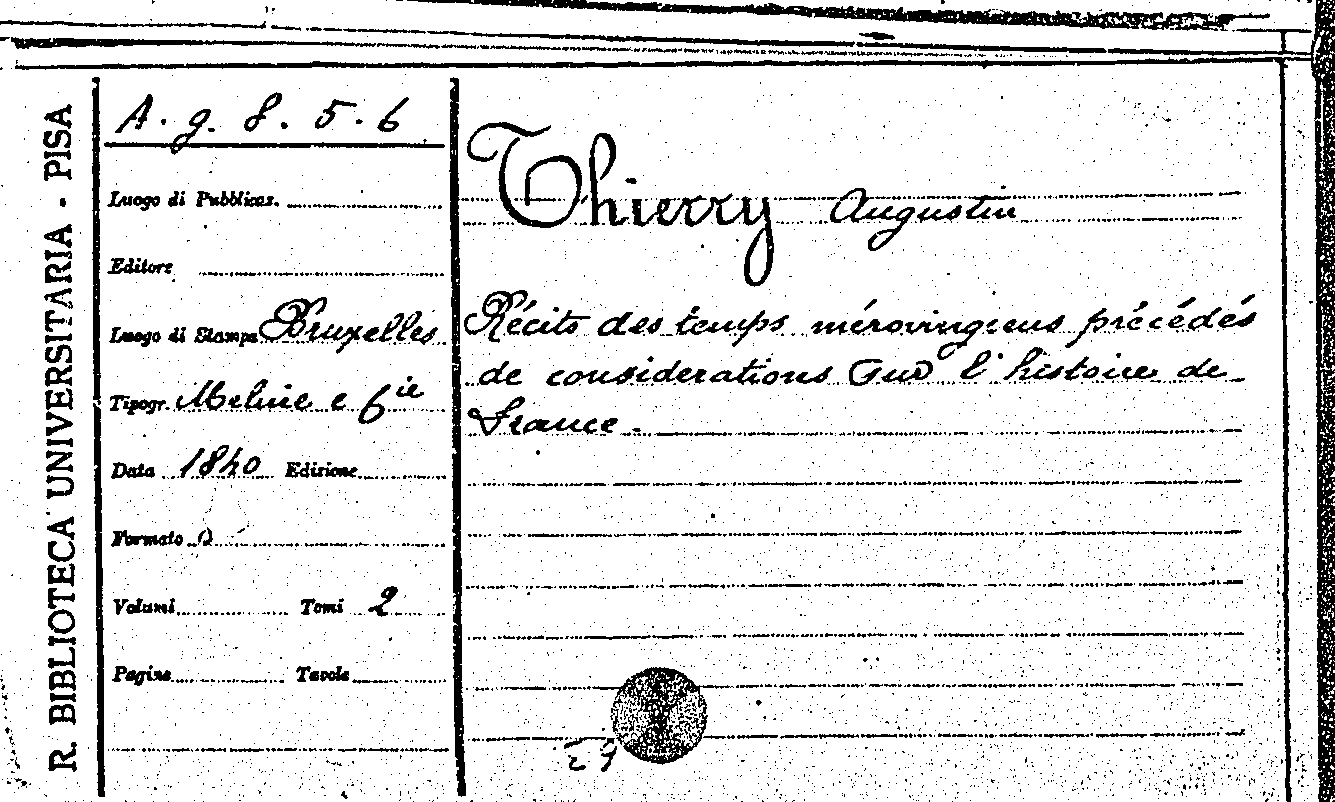 R. BIBLIOTECA UNIVERSITARIA - PISA
A. g. 8. 5. 6
Luogo di Pubblicaz.
Editore
Luogo di Stampa Bruxelles
Tipogr. Meline e Cie
Data 1840 Edizione
Formato
Volumi Tomi 2
Pagine Tavole
Thierry Augustin
Récits des temps mérovingiens précédés
de considerations sur l'histoire de
France.